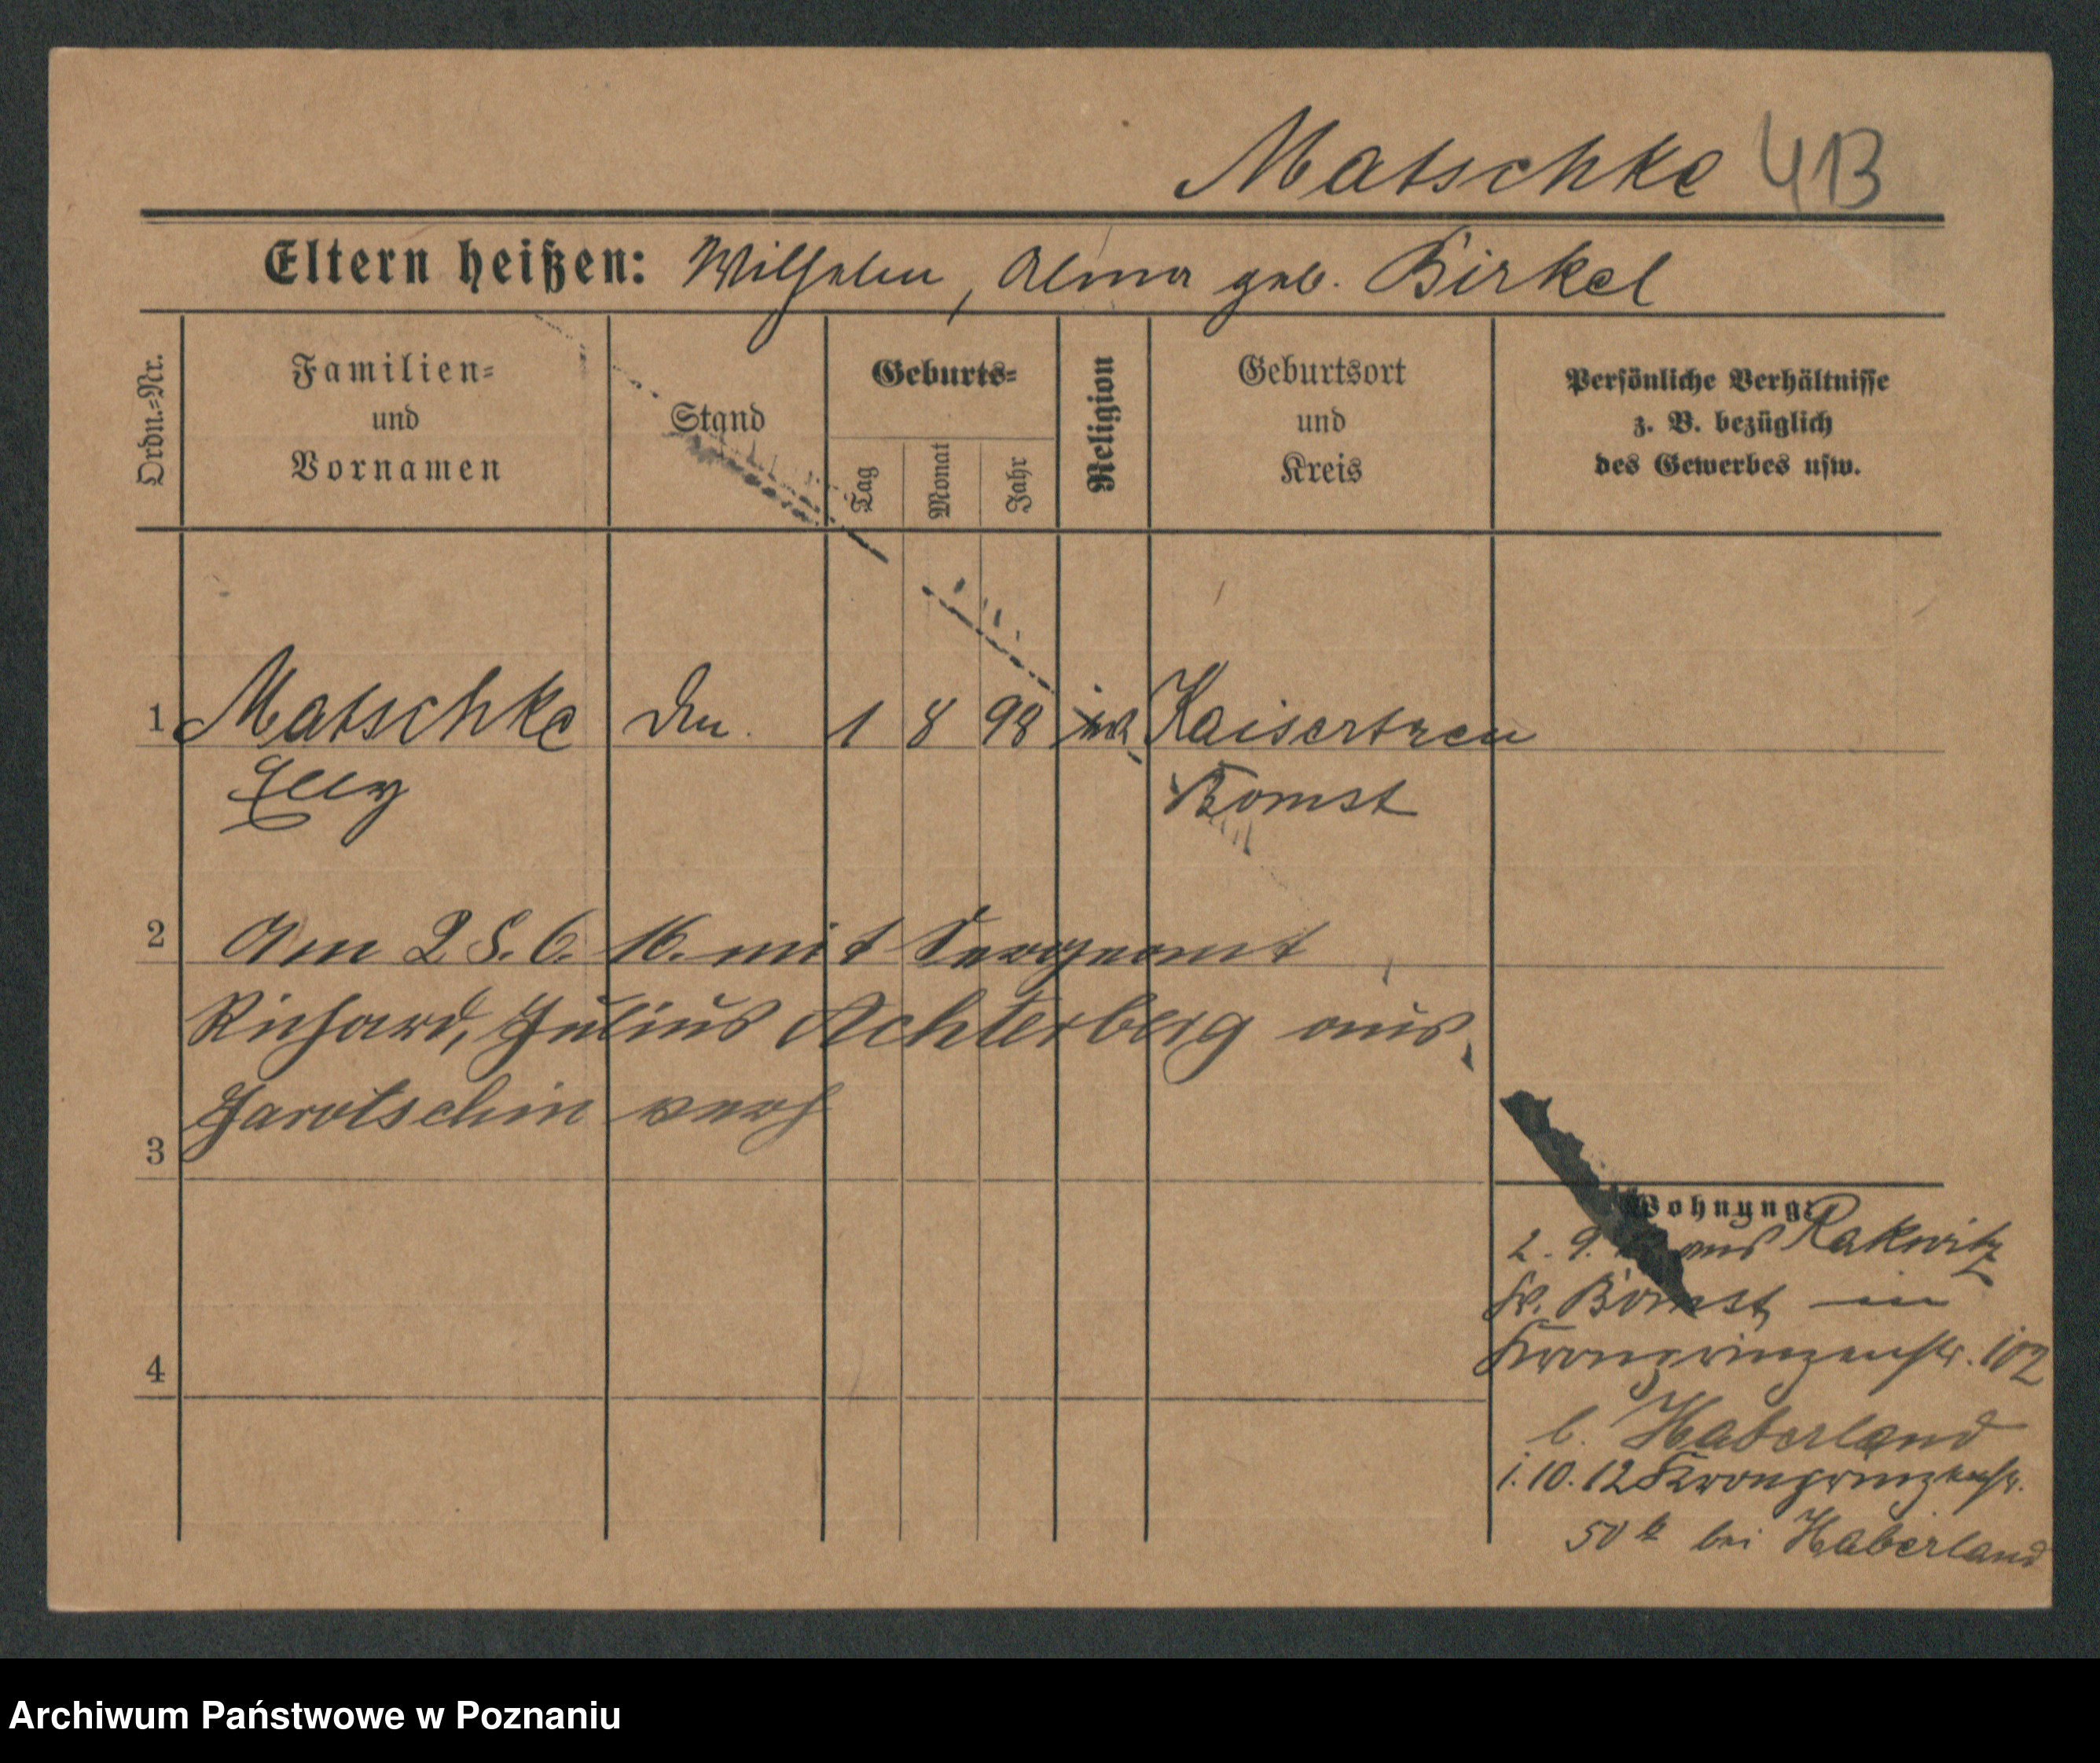 Matschke 413
Eltern heißen: Wilhelm, Alma geb. Birkel
Ordn.=Nr.
Familien=
und
Vornamen
Stand
Geburts=
Tag
Monat
Jahr
Religion
Geburtsort
und
Kreis
Persönliche Verhältnisse
z. B. bezüglich
des Gewerbes usw.
1 Matschke 1 8 98 Kaisertreu
Elly Bomst
2 Am 25. 6. 16. mit Sergeant
Richard, Julius Achterberg aus
Jarotschin verh
3
4
Wohnung:
2. 9. aus Rakwitz
Kr. Bomst in
Kronprinzenstr. 102
b. Haberland
1. 10. 12 Kronprinzenstr.
50 bei Haberland
Archiwum Państwowe w Poznaniu